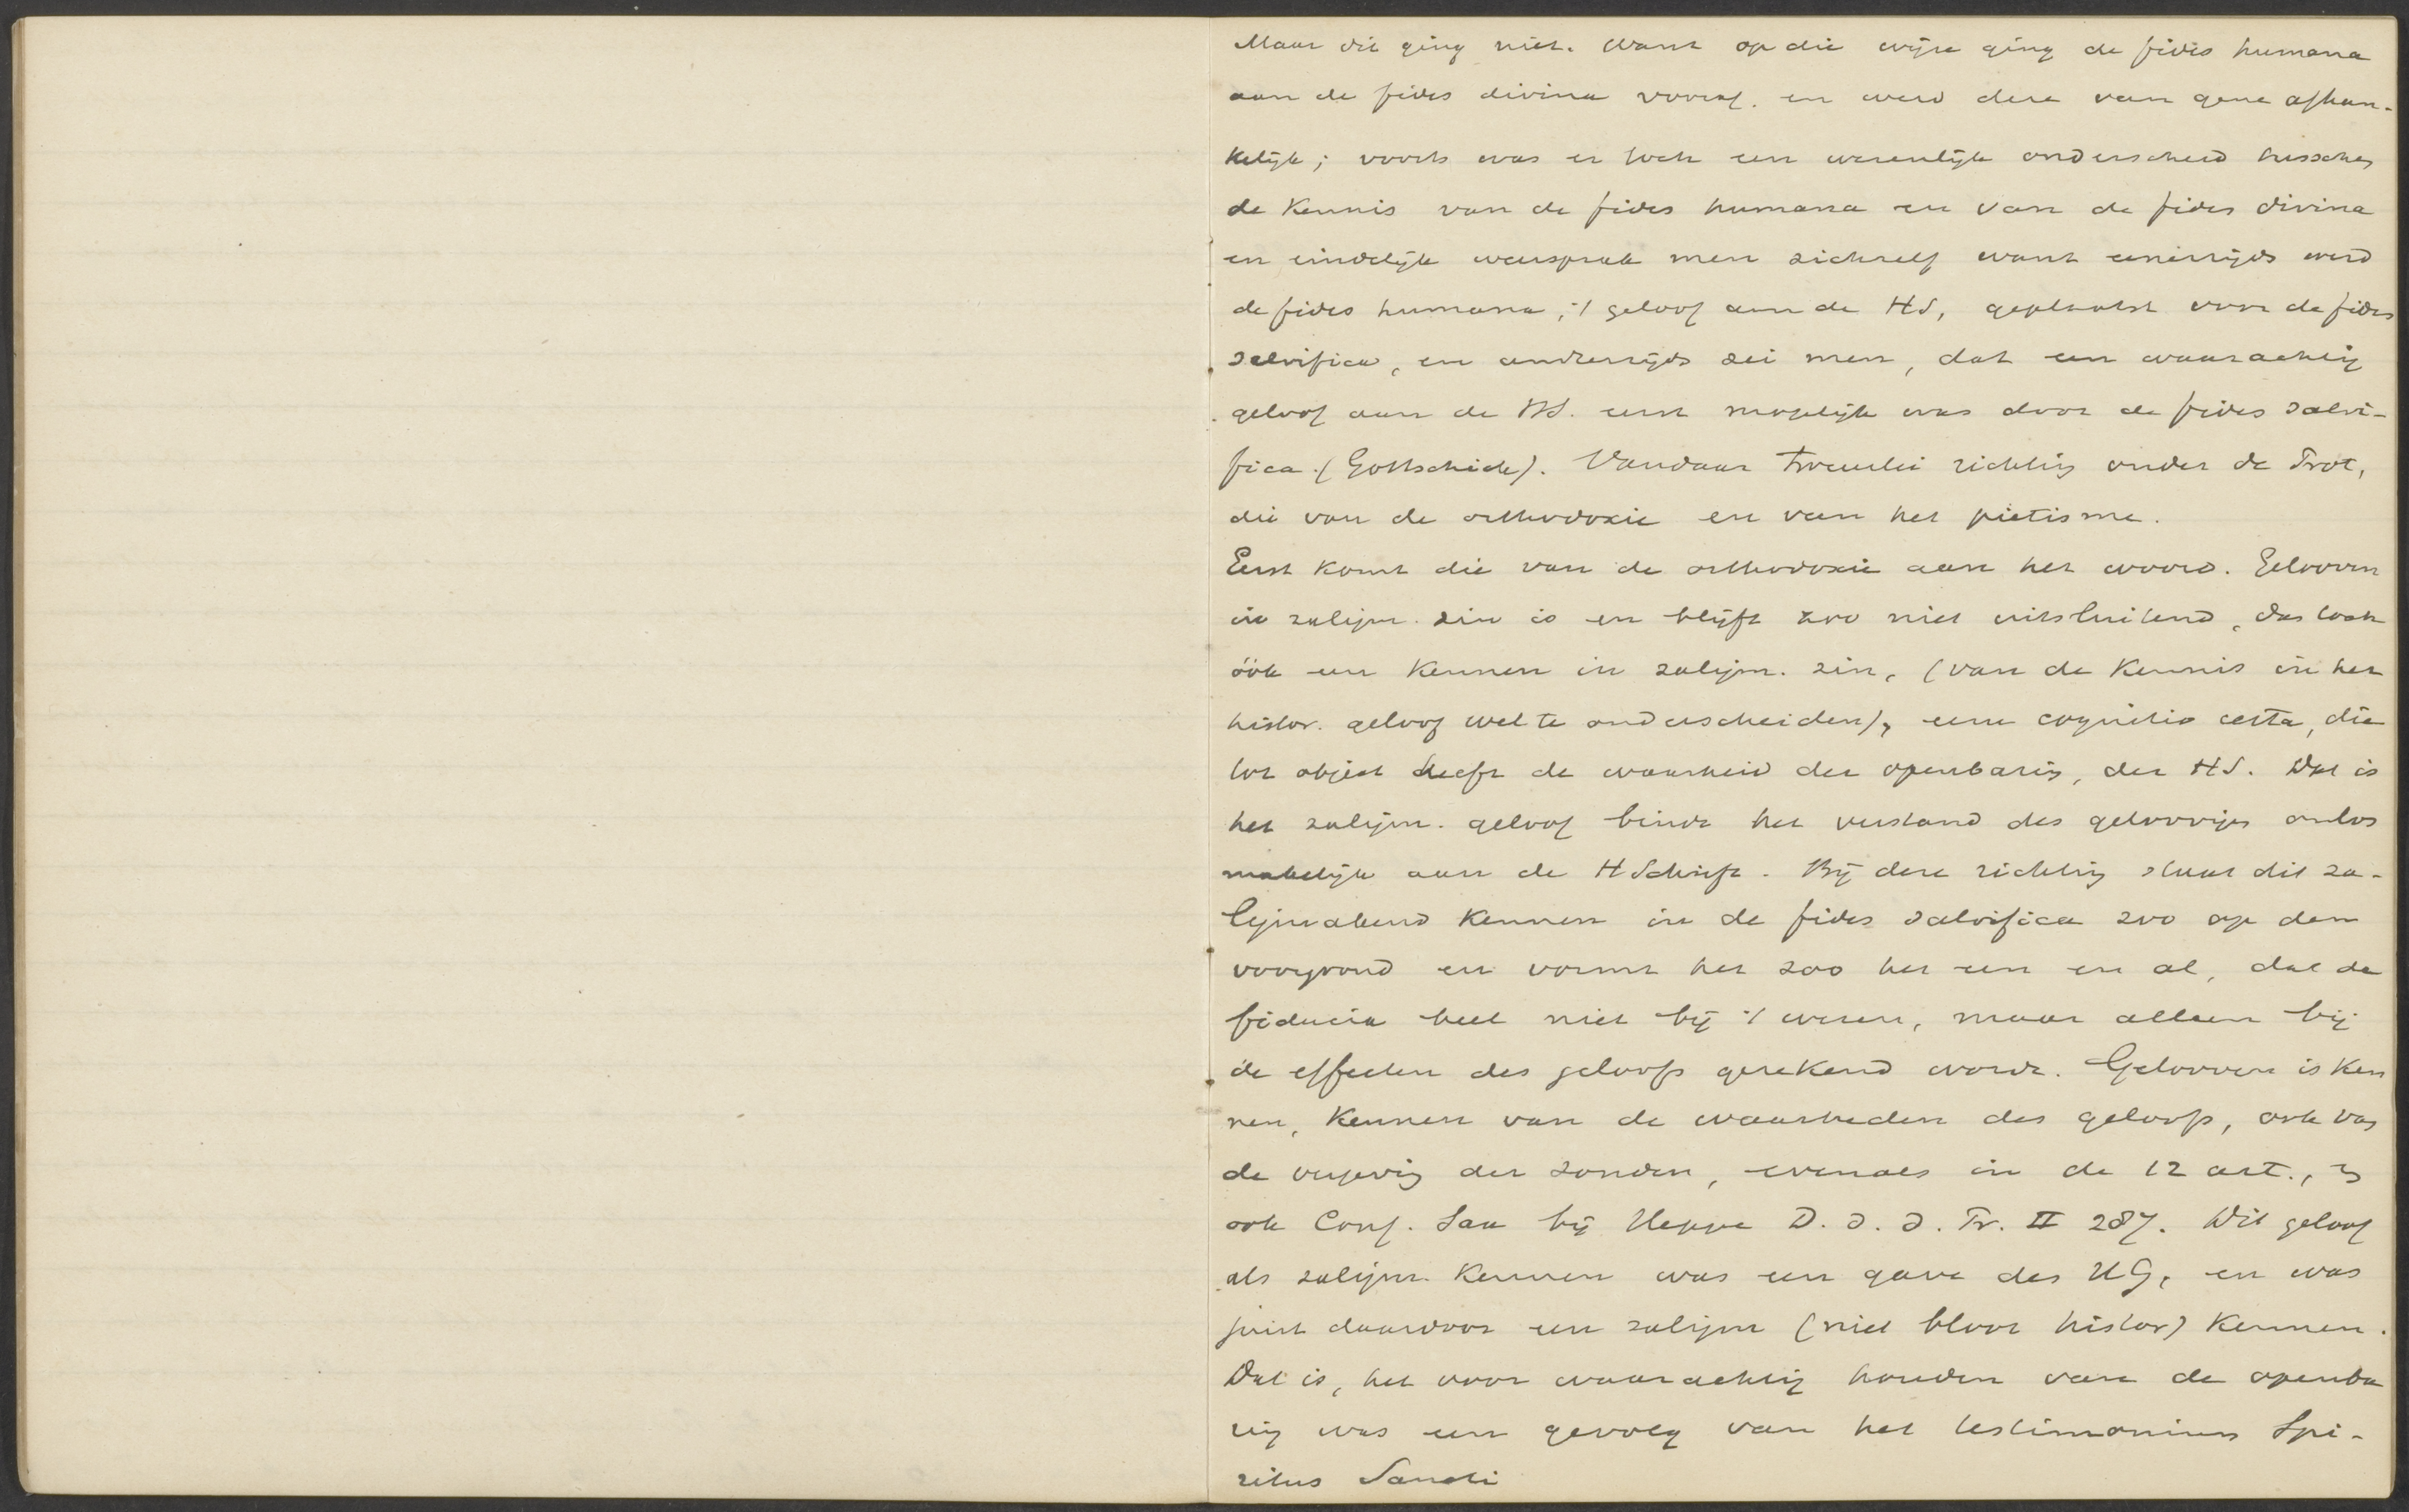 Maar dit ging niet. Want op die wijze ging de fides humana
aan de fides divina vooraf. en werd deze van gene afhan-
kelijk; voorts was er toch een wezenlijk onderscheid tusschen
de kennis van de fides humana en van de fides divina
en eindelijk weersprak men zichzelf want eenerzijds werd
de fides humana, 't geloof aan de HS, geplaatst voor de fides
salvifica, en anderzijds zei men, dat een waarachtig
geloof aan de HS. eerst mogelijk was door de fides salvi-
fica. (Gottschick). Vandaar tweeërlei richting onder de Prot,
die van de orthodoxie en van het pietisme.
Eerst komt die van de orthodoxie aan het woord. Gelooven
in zaligm. zin is en blijft zoo niet uitsluitend, dan toch
óók een kennen in zaligm. zin, (van de kennis in het
histor. geloof wel te onderscheiden), eene cognitio certa, die
tot object heeft de waarheid der openbaring, der HS. Dat is
het zaligm. geloof bindt het verstand des geloovigen onlos
makelijk aan de HSchrift. Bij deze richting staat dit za-
ligmakend kennen in de fides salvifica zoo op den
voorgrond en vormt het zoo het een en al, dat de
fiducia heel niet bij 't wezen, maar alleen bij
de effecten des geloofs gerekend wordt. Gelooven is ken
nen, kennen van de waarheden des geloofs, ook van
de vergeving der zonden, evenals in de 12 art., en
ook Conf. Sax bij Heppe D. d. d. Pr. II 287. Dit geloof
als zaligm. kennen was een gave des HG, en was
juist daardoor een zaligm (niet bloot histor) kennen.
Dat is, het voor waarachtig houden van de openba
ring was een gevolg van het testimonium Spi-
ritus Sancti